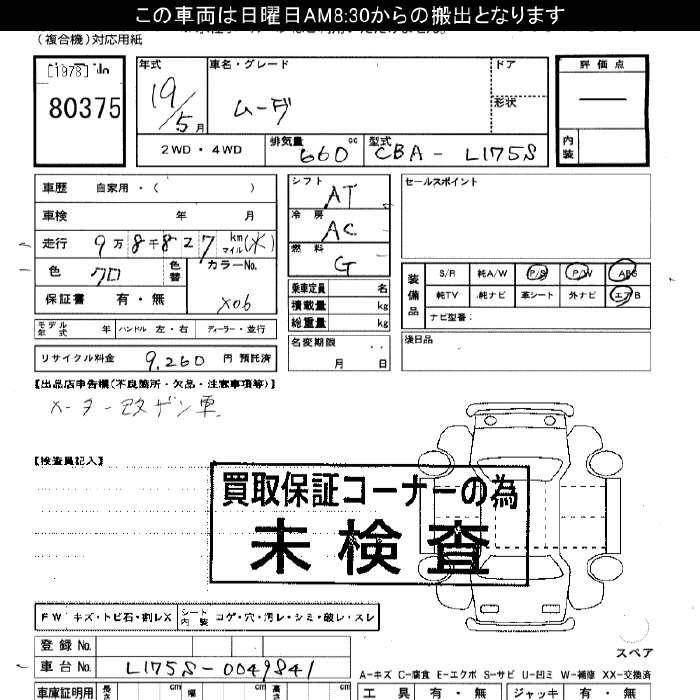 この車両は日曜日AM8:30からの搬出となります
(複合機)対応用紙
[1978]
80375
年式 車名・グレード ドア 評価点
19/5月 ムーヴ 形状 ―
2WD・4WD 排気量 660 cc 型式 CBA - L175S 内装
車歴 自家用・( )
車検 年 月
走行 9万8千827 km マイル (メ)
色 クロ 色替 カラーNo.
保証書 有・無 X06
モデル年式 年 ハンドル 左・右 ディーラー・並行
リサイクル料金 9,260 円 預託済
シフト AT
冷房 AC
燃料 G
乗車定員 名
積載量 kg
総重量 kg
名変期限 . .
月 日
セールスポイント
装備品 S/R 純A/W P/S P/W ABS
純TV 純ナビ 革シート 外ナビ エアB
ナビ型番:
後日品
【出品店申告欄(不良箇所・欠品・注意事項等)】
メーター改ザン車
【検査員記入】
買取保証コーナーの為
未検査
FW キズ・トビ石・割レX シート内装 コゲ・穴・汚レ・シミ・破レ・スレ
登録No.
車台No. L175S-0049841
スペア
A-キズ C-腐食 E-エクボ S-サビ U-凹ミ W-補修 XX-交換済
車庫証明用 長さ cm 幅 cm 高さ cm 工具 有・無 ジャッキ 有・無